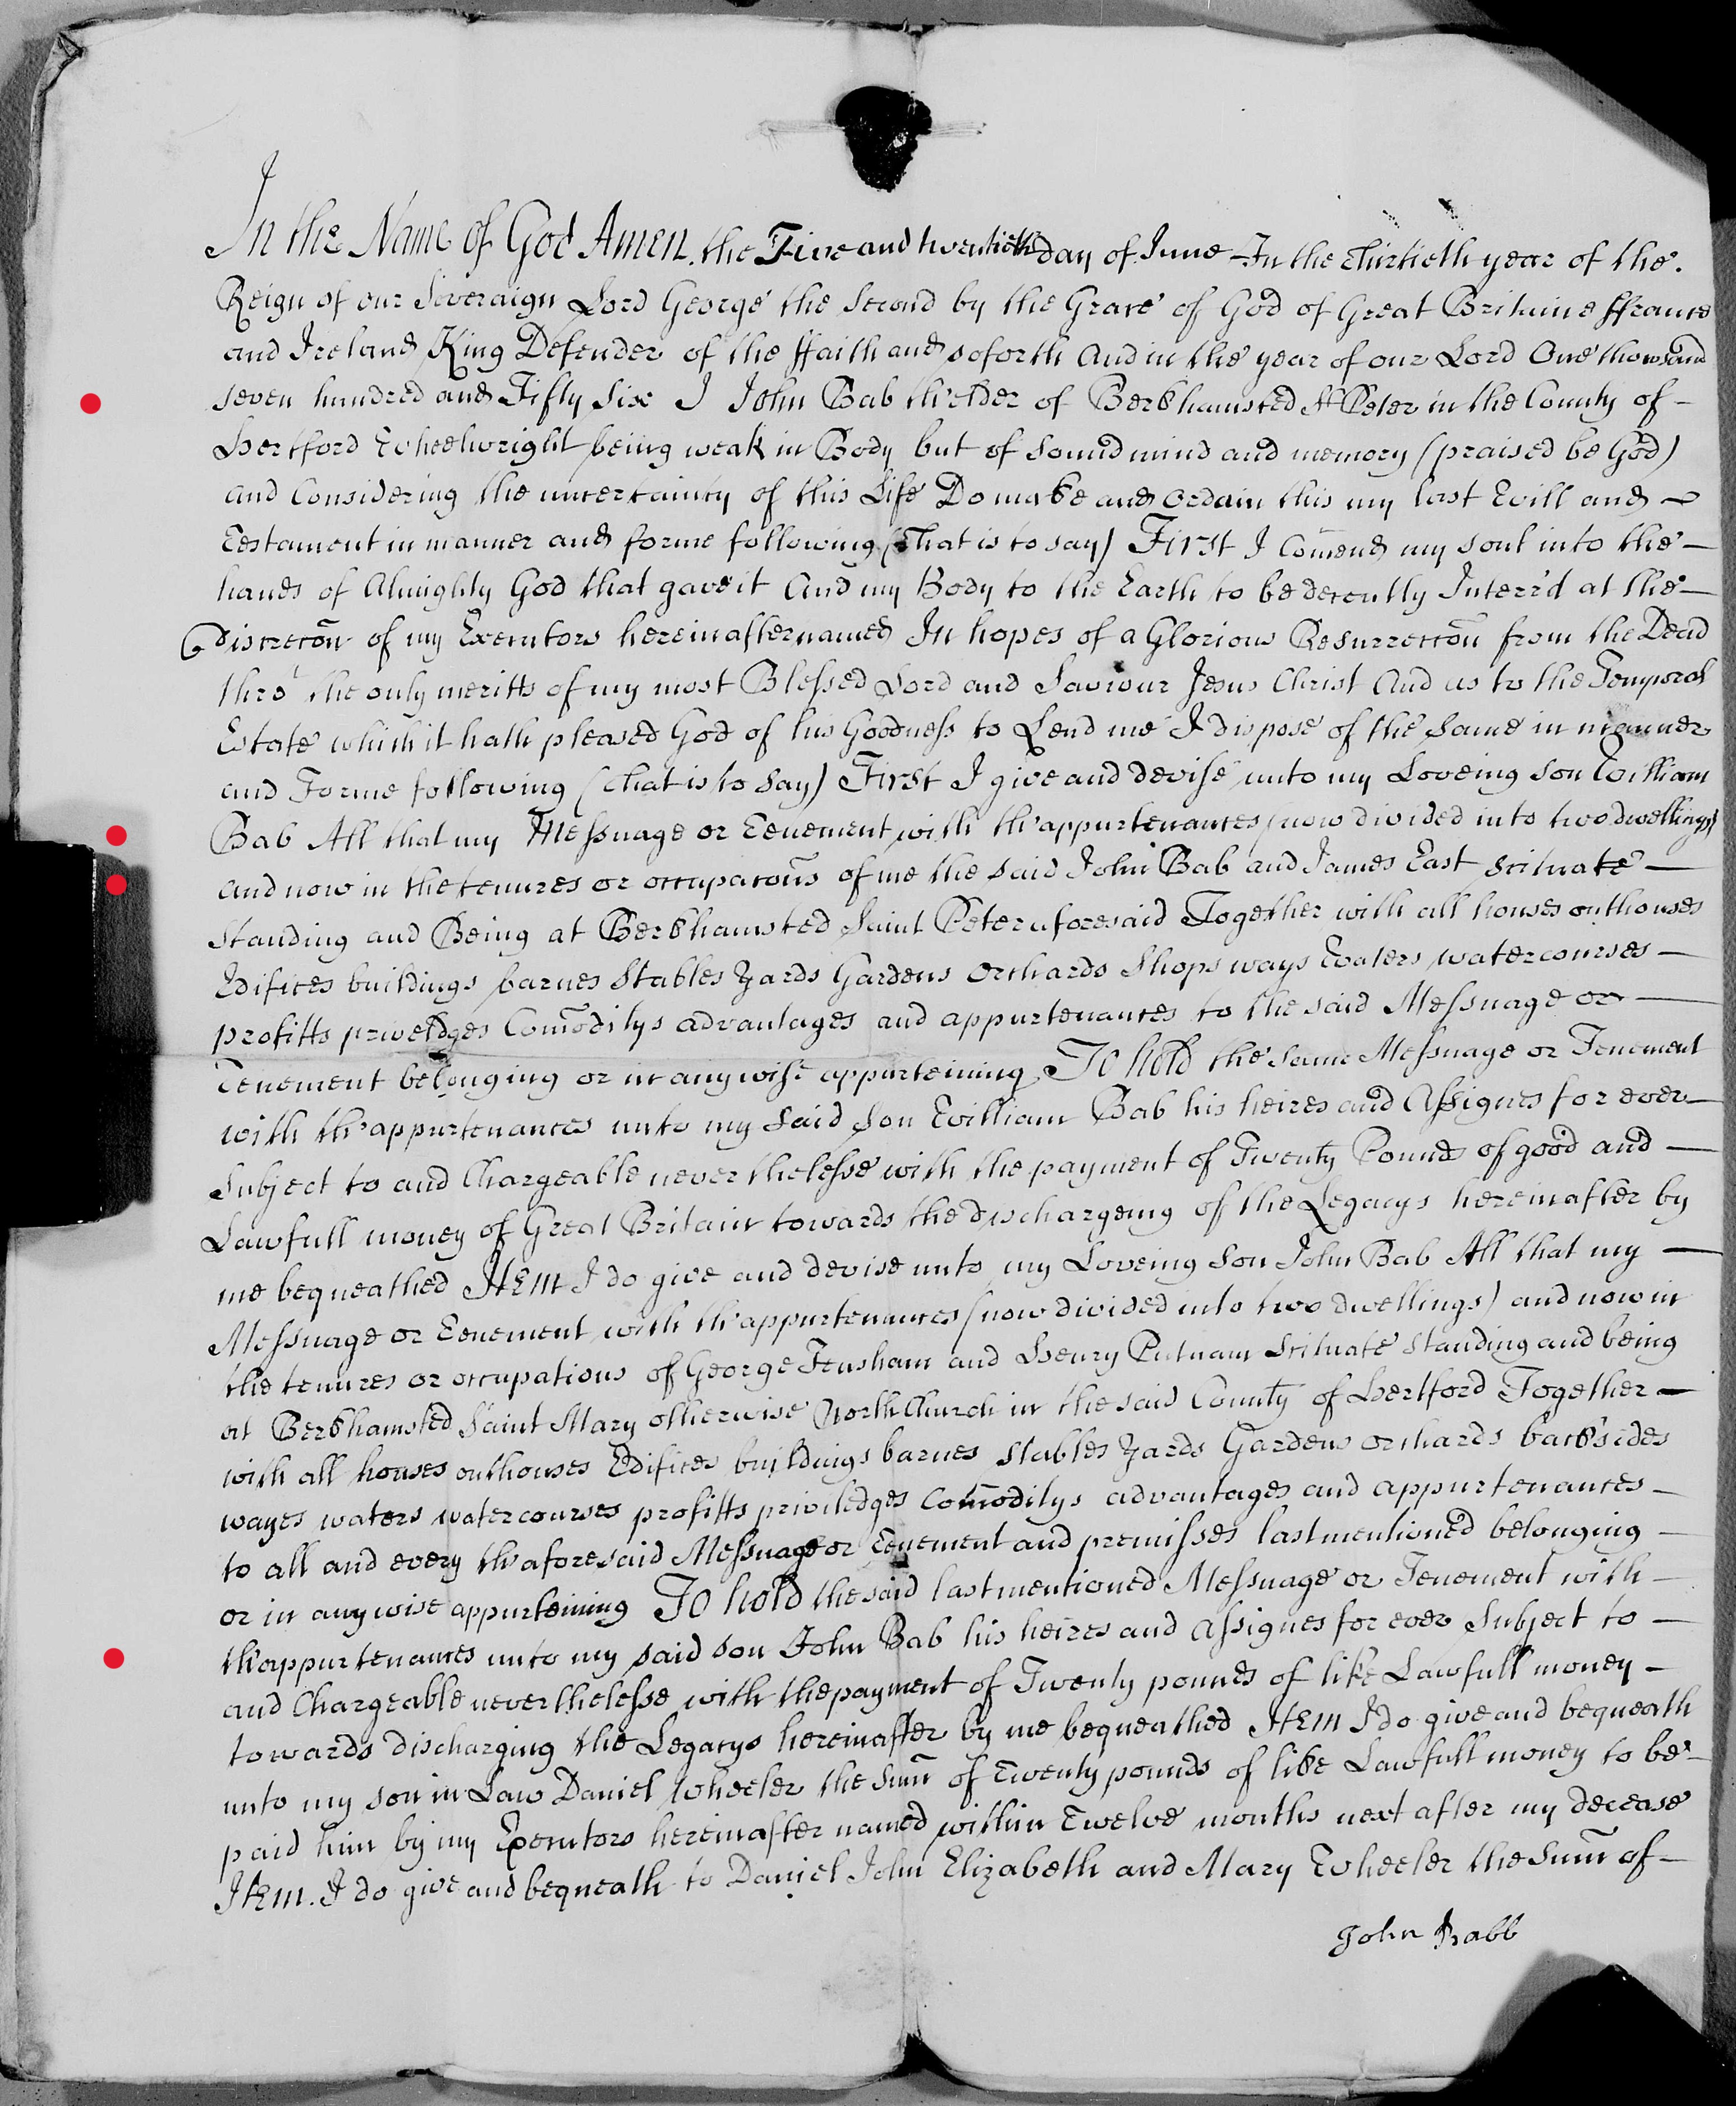 In the Name of God Amen. the Five and twentieth day of June In the Thirtieth year of the.
Reign of our Soveraign Lord George the Second by the Grace of God of Great Brittaine ffrance
and Ireland King Defender of the ffaith and soforth And in the year of our Lord One thousand
seven hundred and Fifty Six I John Bab th'elder of Berkhamsted St. Peter in the County of -
Hertford Wheelwright being weak in Body but of Sound mind and memory (praised be God)
and Considering the uncertainty of this Life Do make and ordain this my last Will and -
Testament in manner and forme following (That is to say) First I Com̄end my soul into the -
hands of Almighty God that gave it And my Body to the Earth to be decently Interr'd at the -
discrecōn of my Executors hereinafter named In hopes of a Glorious Resurreccōn from the Dead
thro' the only meritts of my most Blessed Lord and Saviour Jesus Christ And as to the Temporal
Estate which it hath pleased God of his Goodness to Lend me I dispose of the Same in manner
and Forme following (that is to Say) First I give and devise unto my Loveing Son William
Bab All that my Messuage or Tenement with th'appurtenances (now divided into two dwellings)
and now in the tenures or occupacōns of me the said John Bab and James East Scituate -
Standing and Being at Berkhamsted Saint Peter aforesaid Together with all houses outhouses
Edifices buildings barnes Stables Yards Gardens Orchards Shops ways Waters watercourses -
profitts priveledges Com̄oditys advantages and appurtenances to the said Messuage or -
Tenement belonging or in any wise appurteining To hold the same Messuage or Tenement
with th'appurtenances unto my Said Son William Bab his heires and Assignes for ever
Subject to and Chargeable never thelesse with the payment of Twenty Pounds of good and -
Lawfull money of Great Britain towards the dischargeing of the Legacys hereinafter by
me bequeathed Item I do give and devise unto my Loveing Son John Bab All that my -
Messuage or Tenement with th'appurtenances (now divided into two dwellings) and now in
the tenures or occupations of George Fensham and Henry Putnam Scituate Standing and being
at Berkhamsted Saint Mary otherwise North Church in the said County of Hertford Together -
with all houses outhouses Edifices buildings barnes Stables Yards Gardens orchards backsides
wayes waters watercourses profitts priviledges Com̄oditys advantages and appurtenances -
to all and every th'aforesaid Messuage or Tenement and premisses last mentioned belonging -
or in any wise appurteining To hold the said last mentioned Messuage or Tenement with -
th'appurtenances unto my said son John Bab his heires and Assignes for ever Subject to -
and Chargeable never thelesse with the payment of Twenty pounds of like Lawfull money -
towards discharging the Legacys hereinafter by me bequeathed Item I do give and bequeath
unto my son in Law Daniel Wheeler the Sum̄ of Twenty pounds of like Lawfull money to be -
paid him by my Executors hereinafter named within Twelve months next after my decease
Item. I do give and bequeath to Daniel John Elizabeth and Mary Wheeler the Sum̄ of -
John Babb